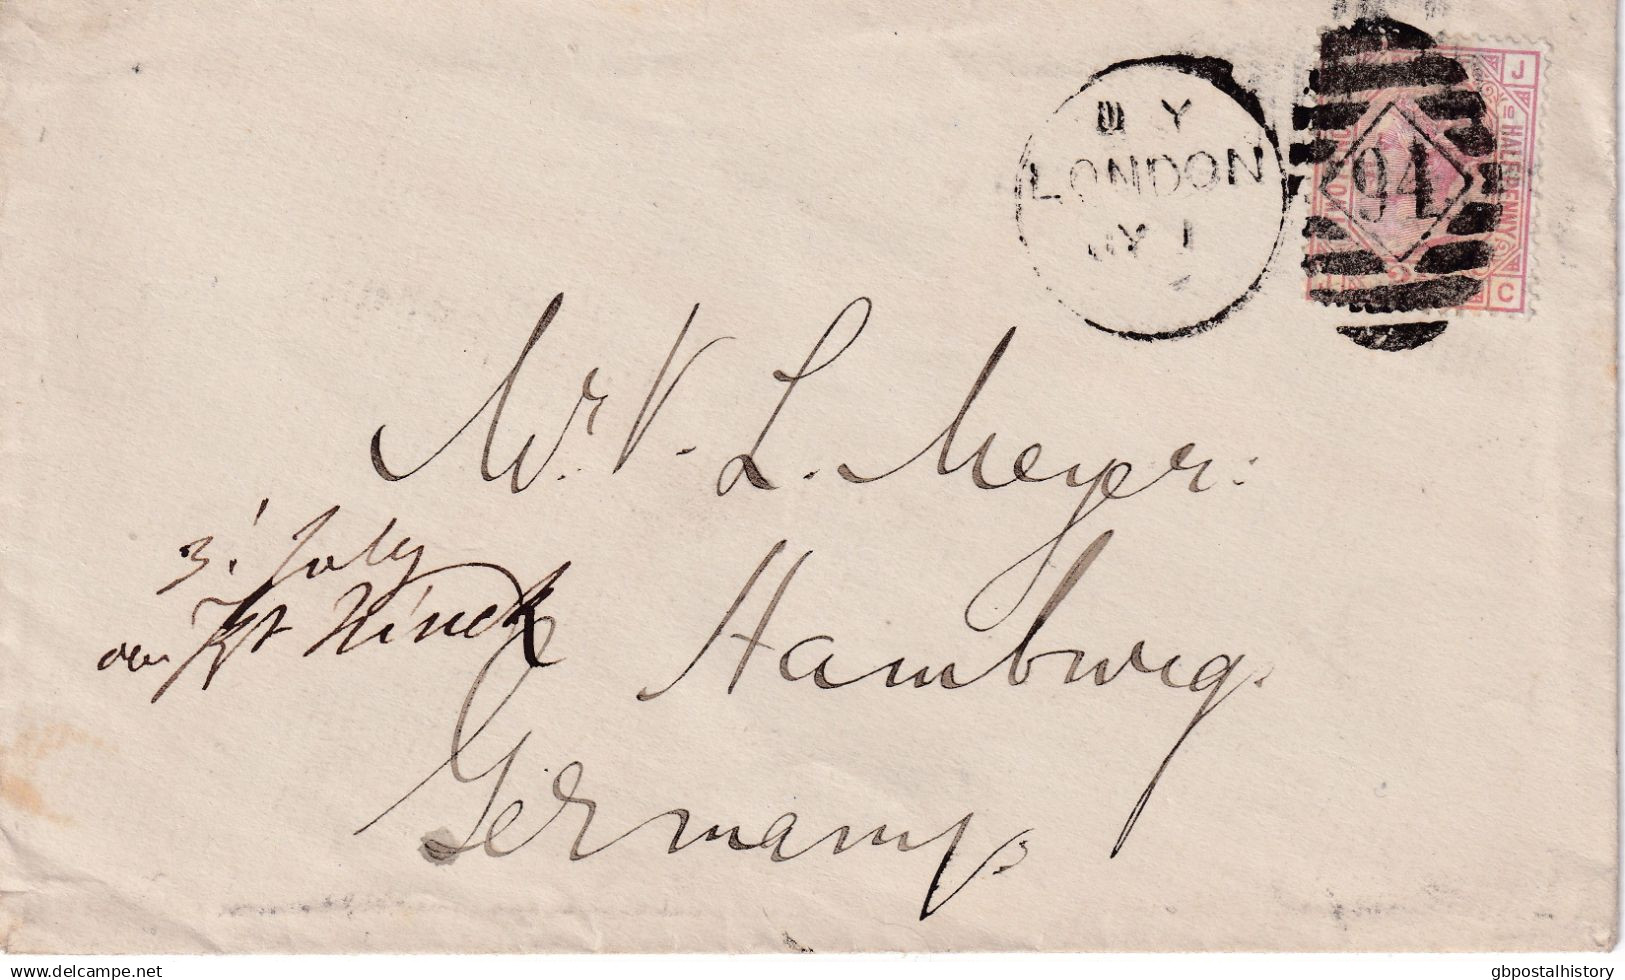 Y
LONDON
1
94
J
HALFPENNY
C
Mr. V. L. Meyer.
3. July
Hamburg.
Germany.
www.delcampe.net
gbpostalhistory